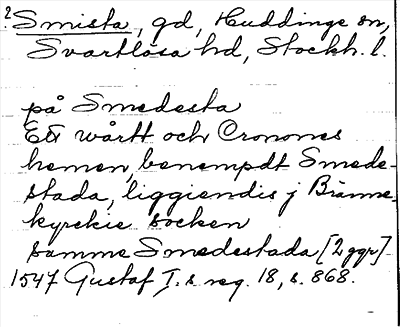 2. Smista, gd, Huddinge sn,
Svartlösa hd, Stockh. l.
på Smedesta
Ett wårtt och Cronones
hemen, benempdt Smede-
stada, liggiendis j Bränne-
kyrckie socken
samme Smedestada [2 ggr]
1547 Gustaf I.s reg. 18, s. 868.